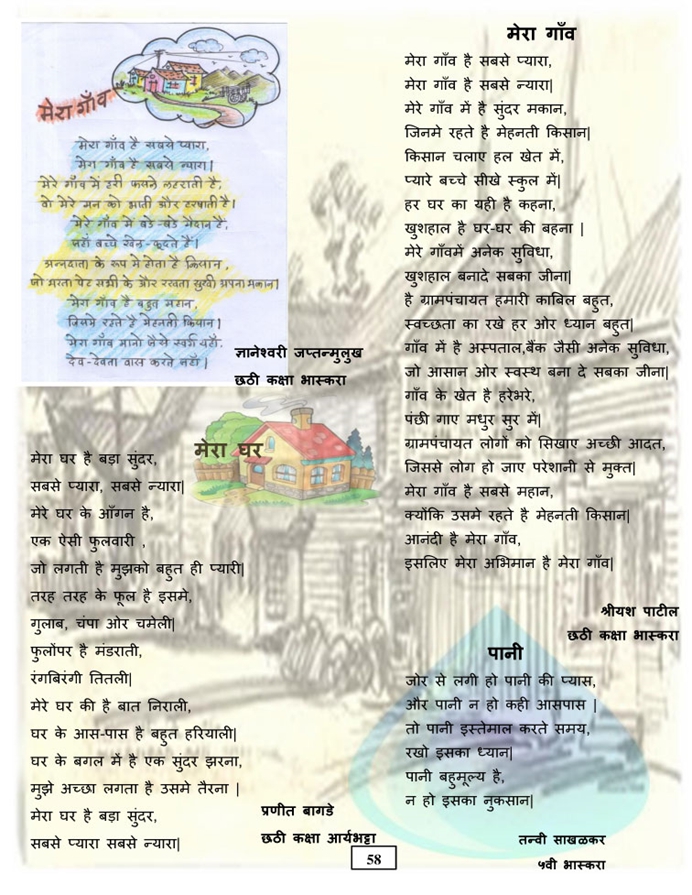 मेरा गाँव
मेरा गाँव है सबसे प्यारा,
मेरा गाँव है सबसे न्यारा।
मेरे गाँव में हरी फसले लहराती है,
वो मेरे मन को भाती और हरषाती है।
मेरे गाँव मे बडे-बडे मैदान है,
जहाँ बच्चे खेल-कूदते है।
अन्नदाता के रूप मे होता है किसान,
जो भरता पेट सभी के और रखता सुखी अपना मकान।
मेरा गाँव है बहुत महान,
जिसमे रहते है मेहनती किसान।
मेरा गाँव मानो जैसे स्वर्ग यही,
देव-देवता वास करते जहाँ।
ज्ञानेश्वरी जप्तन्मुलुख
छठी कक्षा भास्करा
मेरा घर
मेरा घर है बड़ा सुंदर,
सबसे प्यारा, सबसे न्यारा|
मेरे घर के आँगन है,
एक ऐसी फुलवारी ,
जो लगती है मुझको बहुत ही प्यारी|
तरह तरह के फूल है इसमे,
गुलाब, चंपा ओर चमेली|
फुलोंपर है मंडराती,
रंगबिरंगी तितली|
मेरे घर की है बात निराली,
घर के आस-पास है बहुत हरियाली|
घर के बगल में है एक सुंदर झरना,
मुझे अच्छा लगता है उसमे तैरना |
मेरा घर है बड़ा सुंदर,
सबसे प्यारा सबसे न्यारा|
प्रणीत बागडे
छठी कक्षा आर्यभट्टा
मेरा गाँव
मेरा गाँव है सबसे प्यारा,
मेरा गाँव है सबसे न्यारा|
मेरे गाँव में है सुंदर मकान,
जिनमे रहते है मेहनती किसान|
किसान चलाए हल खेत में,
प्यारे बच्चे सीखे स्कुल में|
हर घर का यही है कहना,
खुशहाल है घर-घर की बहना |
मेरे गाँवमें अनेक सुविधा,
खुशहाल बनादे सबका जीना|
है ग्रामपंचायत हमारी काबिल बहुत,
स्वच्छता का रखे हर ओर ध्यान बहुत|
गाँव में है अस्पताल,बैंक जैसी अनेक सुविधा,
जो आसान ओर स्वस्थ बना दे सबका जीना|
गाँव के खेत है हरेभरे,
पंछी गाए मधुर सुर में|
ग्रामपंचायत लोगों को सिखाए अच्छी आदत,
जिससे लोग हो जाए परेशानी से मुक्त|
मेरा गाँव है सबसे महान,
क्योंकि उसमे रहते है मेहनती किसान|
आनंदी है मेरा गाँव,
इसलिए मेरा अभिमान है मेरा गाँव|
श्रीयश पाटील
छठी कक्षा भास्करा
पानी
जोर से लगी हो पानी की प्यास,
और पानी न हो कही आसपास |
तो पानी इस्तेमाल करते समय,
रखो इसका ध्यान|
पानी बहुमूल्य है,
न हो इसका नुकसान|
तन्वी साखळकर
५वी भास्करा
58